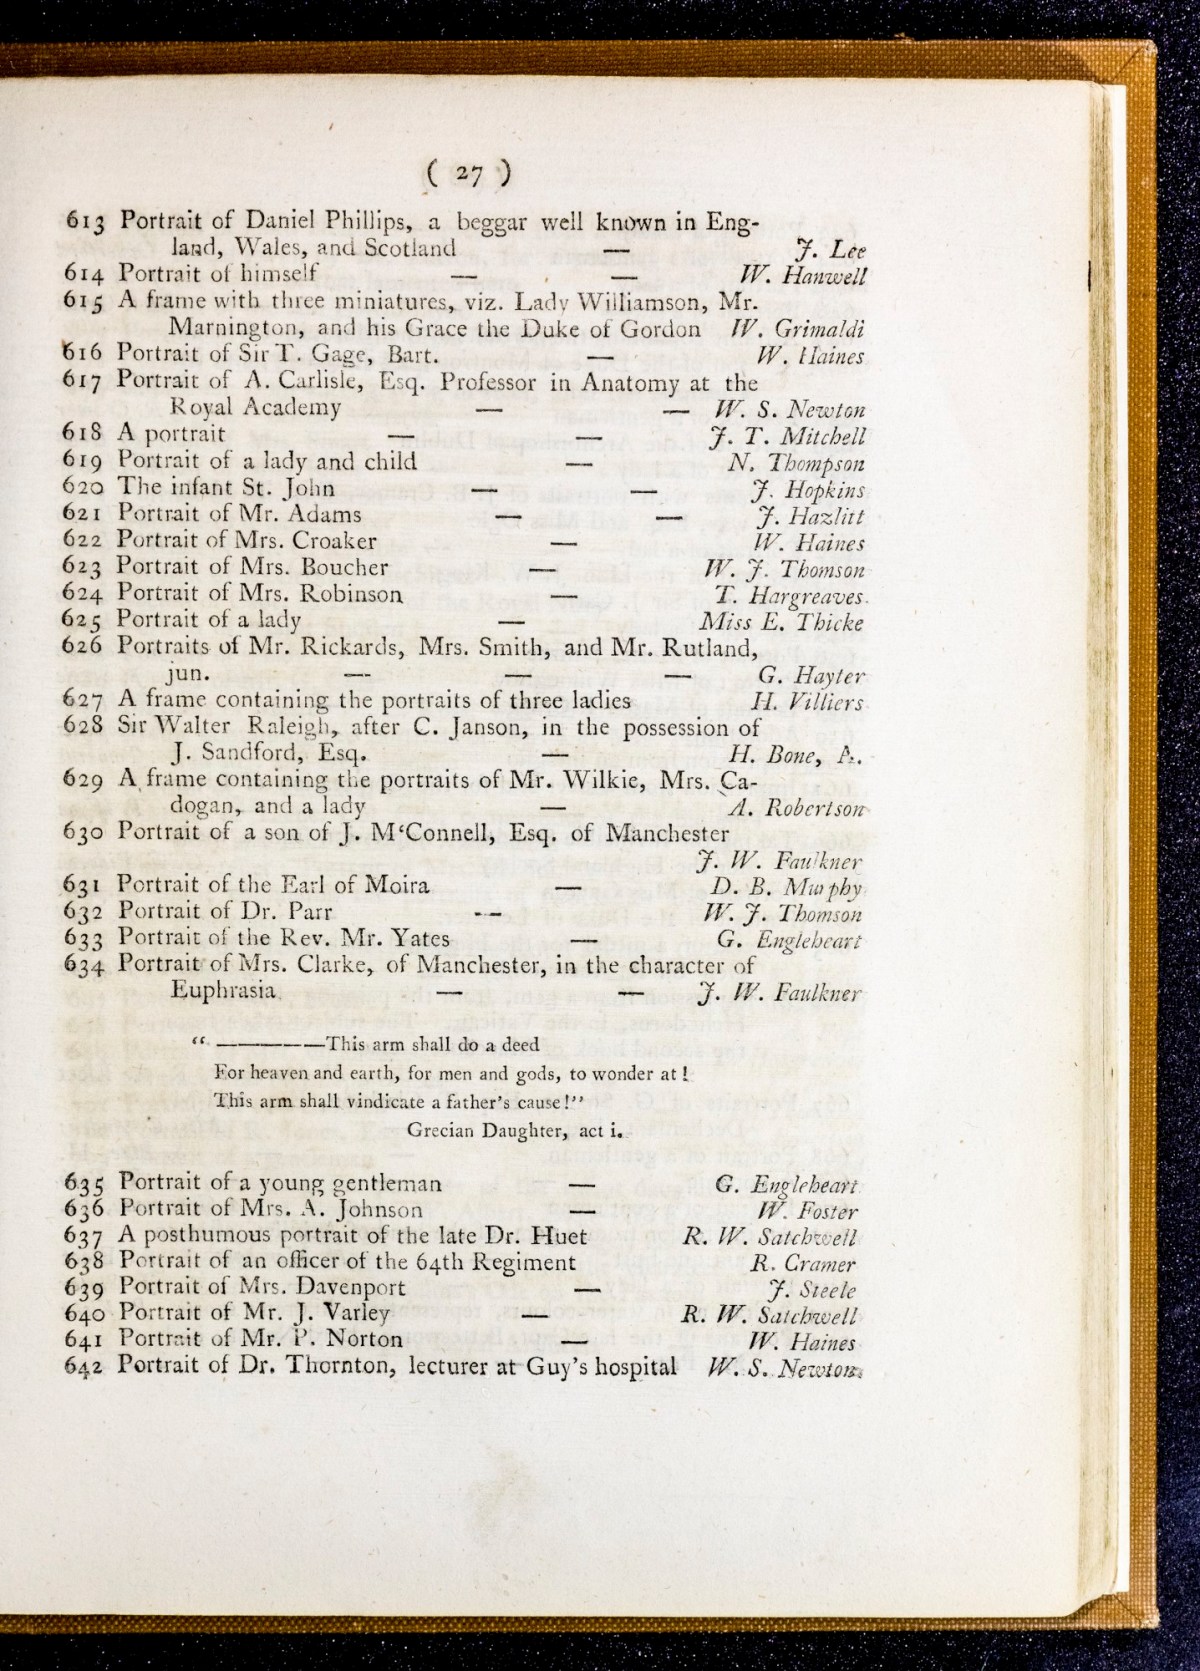 ( 27 )
613 Portrait of Daniel Phillips, a beggar well known in Eng-
land, Wales, and Scotland — J. Lee
614 Portrait of himself — — W. Hanwell
615 A frame with three miniatures, viz. Lady Williamson, Mr.
Marnington, and his Grace the Duke of Gordon W. Grimaldi
616 Portrait of Sir T. Gage, Bart. — W. Haines
617 Portrait of A. Carlisle, Esq. Professor in Anatomy at the
Royal Academy — — W. S. Newton
618 A portrait — — J. T. Mitchell
619 Portrait of a lady and child — N. Thompson
620 The infant St. John — — J. Hopkins
621 Portrait of Mr. Adams — — J. Hazlitt
622 Portrait of Mrs. Croaker — W. Haines
623 Portrait of Mrs. Boucher — W. J. Thomson
624 Portrait of Mrs. Robinson — T. Hargreaves.
625 Portrait of a lady — Miss E. Thicke
626 Portraits of Mr. Rickards, Mrs. Smith, and Mr. Rutland,
jun. — — — G. Hayter
627 A frame containing the portraits of three ladies H. Villiers
628 Sir Walter Raleigh, after C. Janson, in the possession of
J. Sandford, Esq. — H. Bone, A.
629 A frame containing the portraits of Mr. Wilkie, Mrs. Ca-
dogan, and a lady — A. Robertson
630 Portrait of a son of J. M‘Connell, Esq. of Manchester
J. W. Faulkner
631 Portrait of the Earl of Moira — D. B. Murphy
632 Portrait of Dr. Parr — W. J. Thomson
633 Portrait of the Rev. Mr. Yates — G. Engleheart
634 Portrait of Mrs. Clarke, of Manchester, in the character of
Euphrasia — — J. W. Faulkner
“ ————This arm shall do a deed
For heaven and earth, for men and gods, to wonder at!
This arm shall vindicate a father's cause!”
Grecian Daughter, act i.
635 Portrait of a young gentleman — G. Engleheart
636 Portrait of Mrs. A. Johnson — W. Foster
637 A posthumous portrait of the late Dr. Huet R. W. Satchwell
638 Portrait of an officer of the 64th Regiment R. Cramer
639 Portrait of Mrs. Davenport — J. Steele
640 Portrait of Mr. J. Varley — R. W. Satchwell
641 Portrait of Mr. P. Norton — W. Haines
642 Portrait of Dr. Thornton, lecturer at Guy's hospital W. S. Newton.